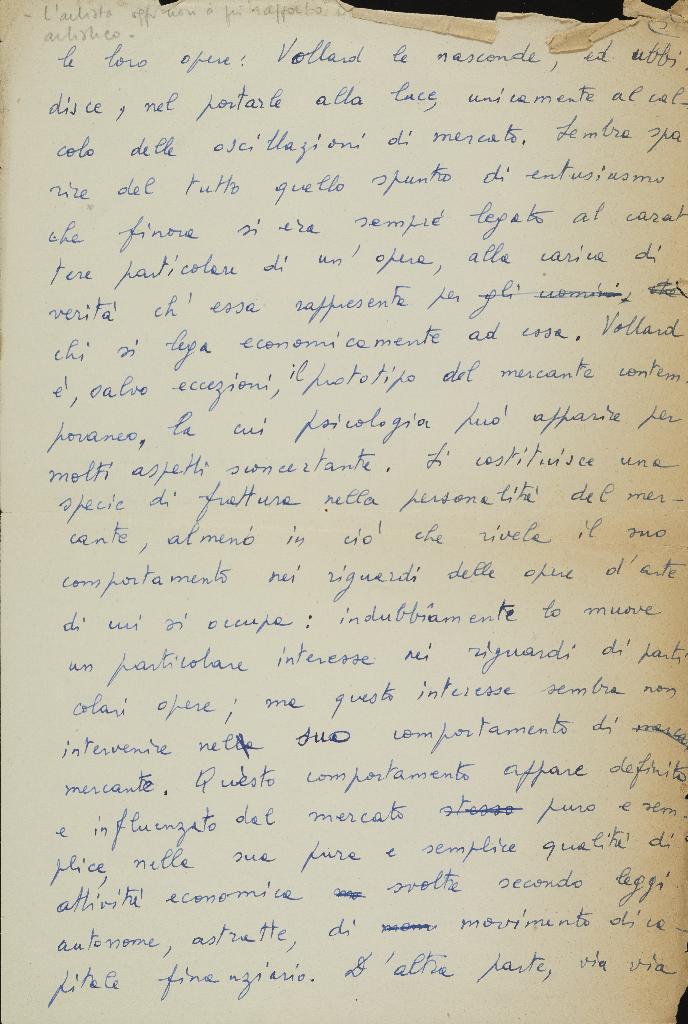 - L'artista oggi non a più rapporto
artistico.
le loro opere: Vollard le nasconde, ed ubbi
disce, nel portarle alla luce, unicamente al cal-
colo delle oscillazioni di mercato. Sembra spa
rire del tutto quello spunto di entusiasmo
che finora si era sempre legato al carat
tere particolare di un' opera, alla carica di
verità ch' essa rappresenta per gli uomini,
chi si lega economicamente ad essa. Vollard
é, salvo eccezioni, il prototipo del mercante contem-
poraneo, la cui psicologia può apparire per
molti aspetti sconcertante. Si costituisce una
specie di frattura nella personalità del mer-
cante, almeno in ciò che rivela il suo
comportamento nei riguardi delle opere d'arte
di cui si occupa: indubbiamente lo muove
un particolare interesse nei riguardi di parti
colari opere; ma questo interesse sembra non
intervenire nel suo comportamento di
mercante. Questo comportamento appare definito
e influenzato dal mercato stesso puro e sem-
plice, nella sua pura e semplice qualità di
attività economica svolta secondo leggi
autonome, astratte, di movimento di ca-
pitale finanziario. D'altra parte, via via